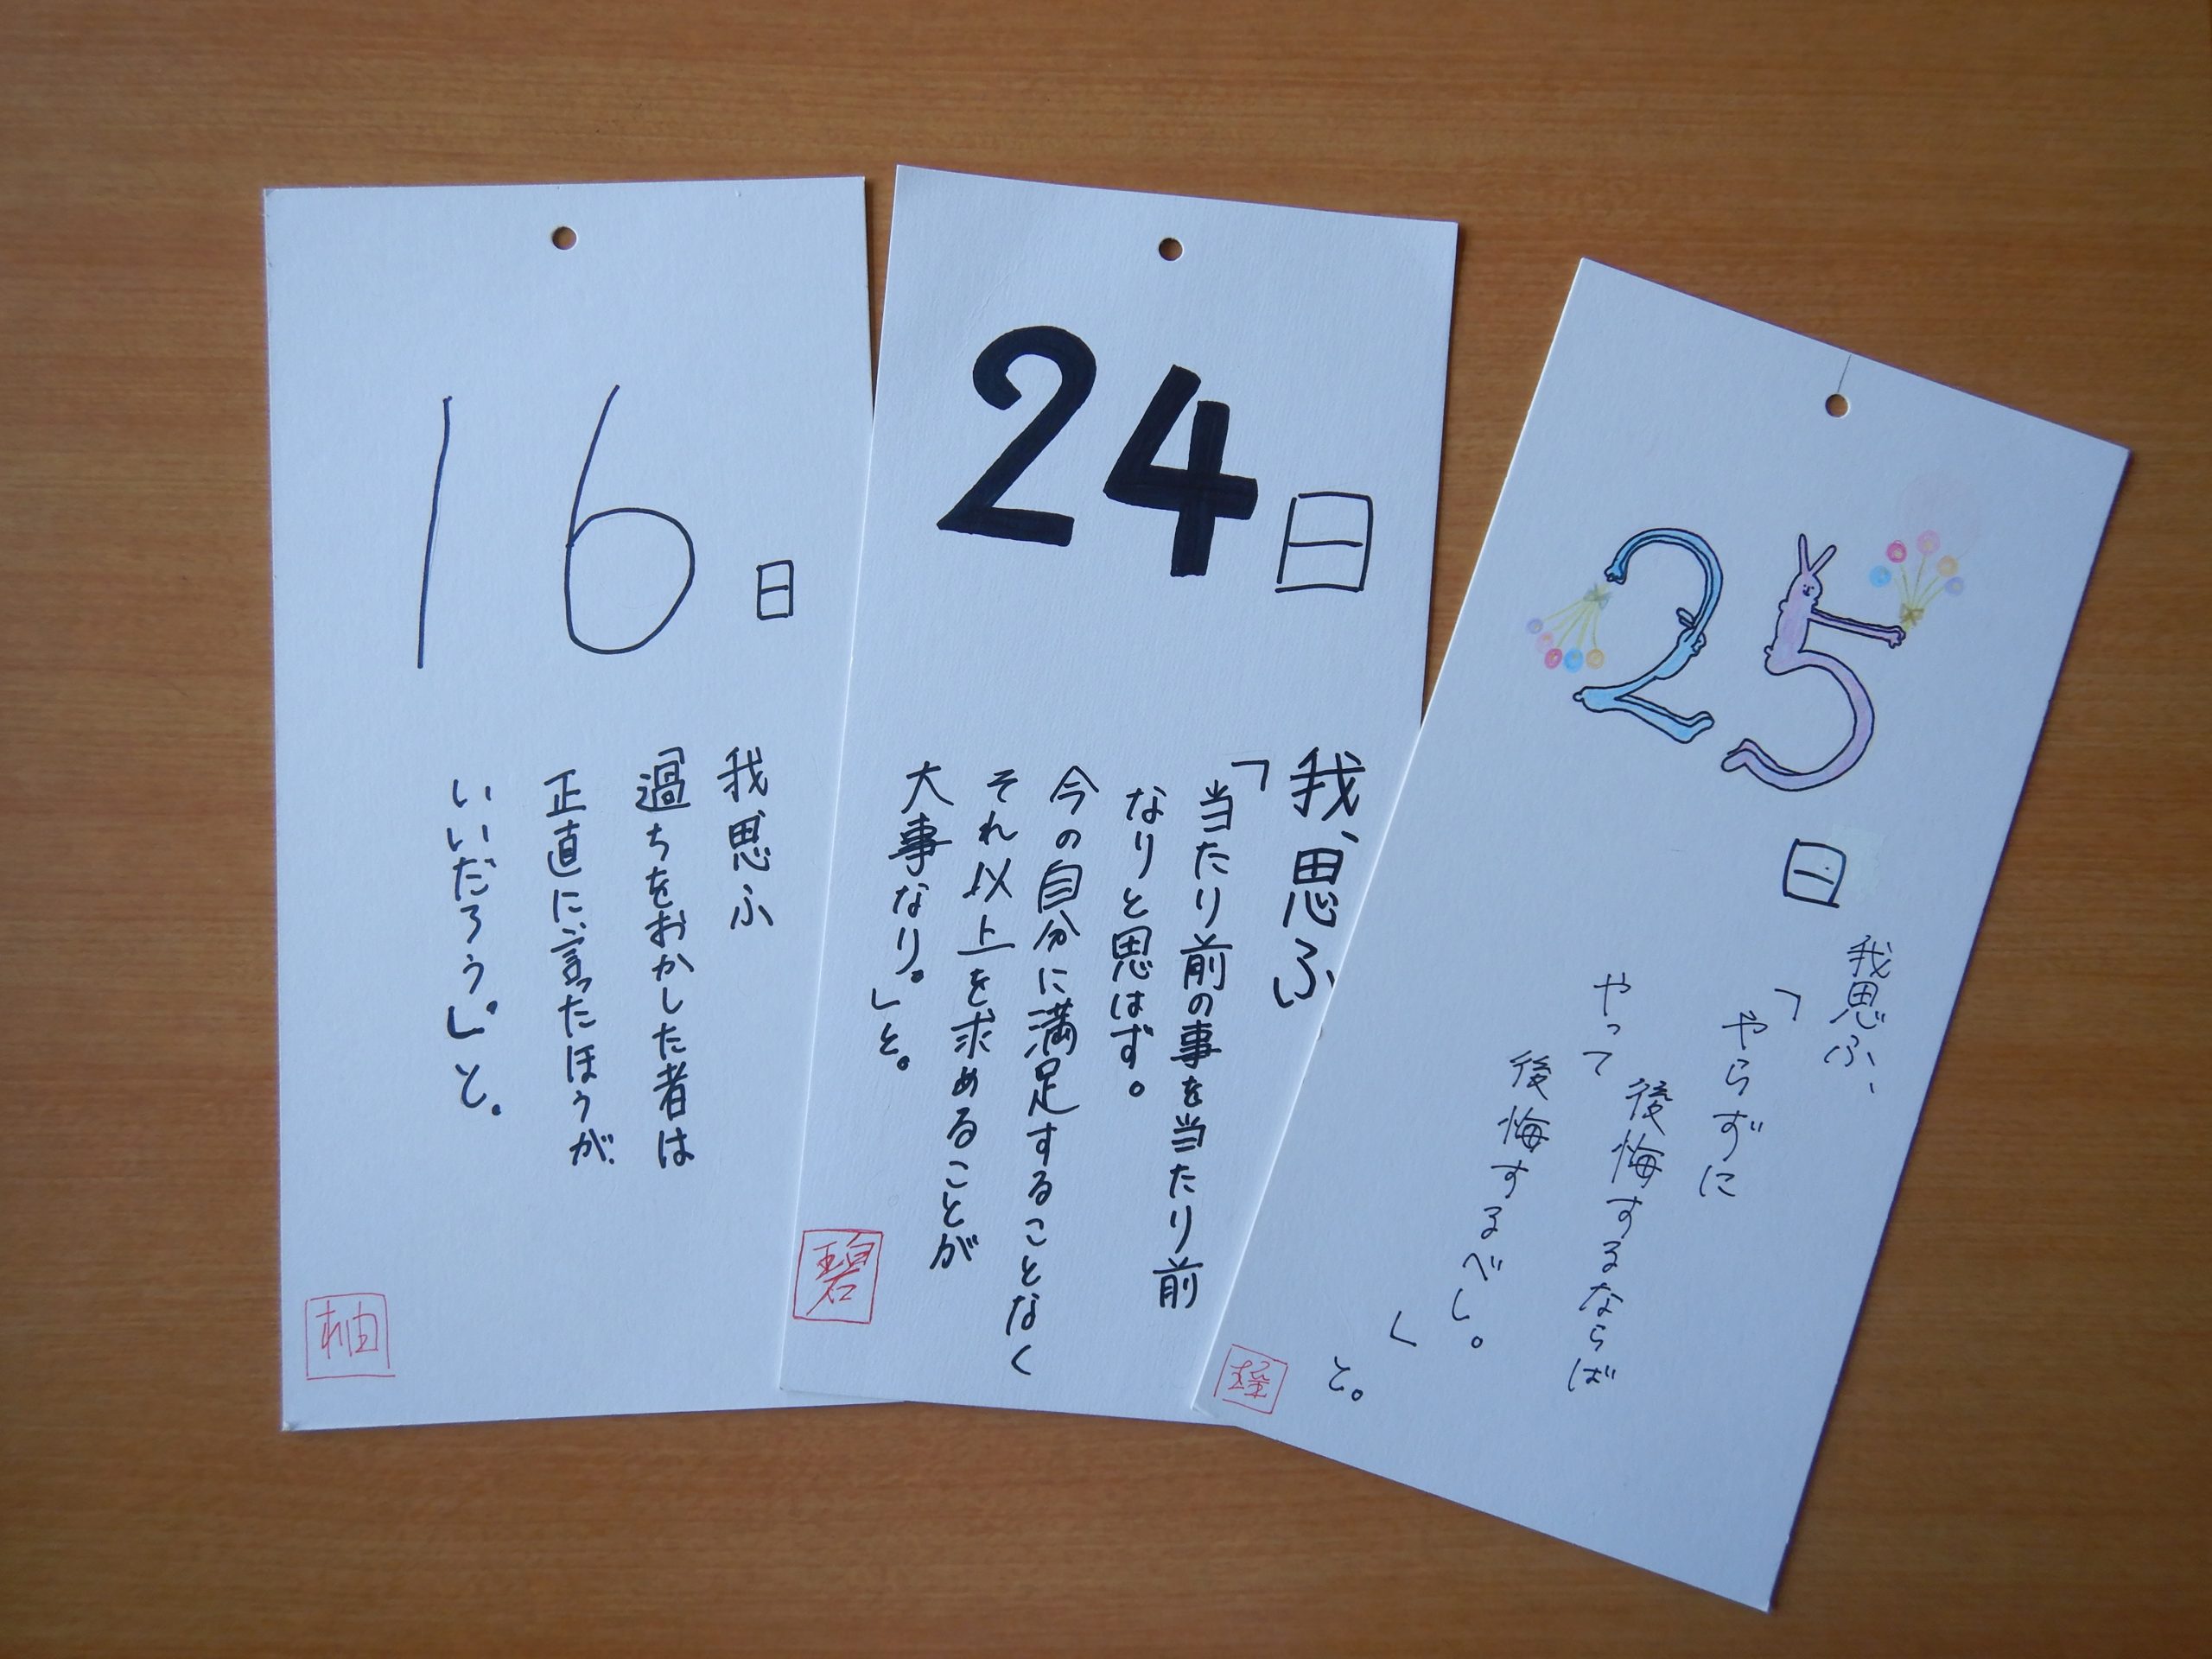 16日
我思ふ
「過ちをおかした者は
正直に言ったほうが
いいだろう。」と。
柚
24日
我、思ふ
「当たり前の事を当たり前
なりと思はず。
今の自分に満足することなく
それ以上を求めることが
大事なり。」と。
碧
25日
我思ふ、
「やらずに
後悔するならば
やって
後悔するべし。
」
と。